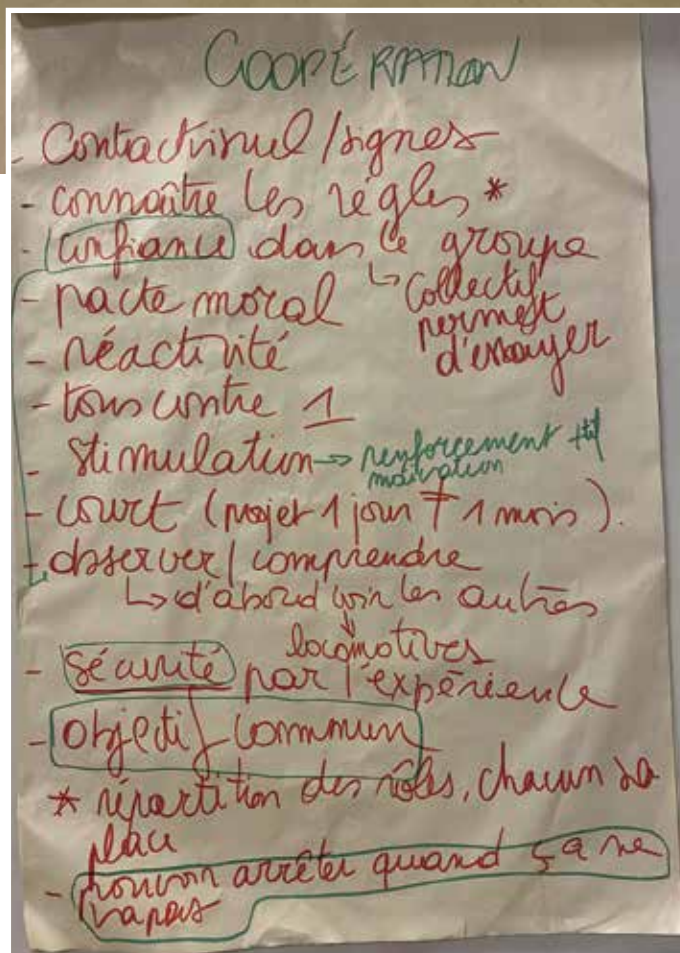 COOPÉRATION
- Contact visuel / signes
- connaître les règles *
- confiance dans le groupe
- pacte moral ↳ Collectif
permet
- réactivité d'essayer
- tous contre 1
- stimulation → renforcement +tif
motivation
- court (projet 1 jour ≠ 1 mois).
- observer / comprendre
↳ d'abord voir les autres
locomotives
- sécurité par l'expérience
- objectif commun
* répartition des rôles, chacun sa
place
- pouvoir arrêter quand ça ne
va pas